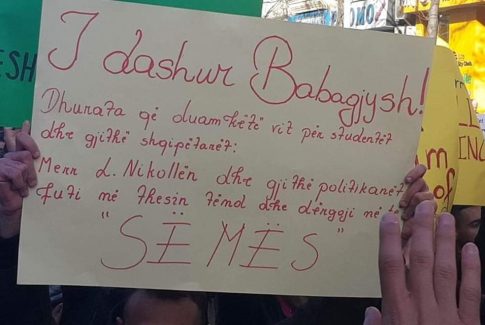 I dashur Babagjysh!
Dhurata që duam këtë vit për studentët
dhe gjithë shqipëtarët:
Merr L. Nikollën dhe gjithë politikanët
futi në thesin tënd dhe dërgoji në
"SËMËS"
ESH